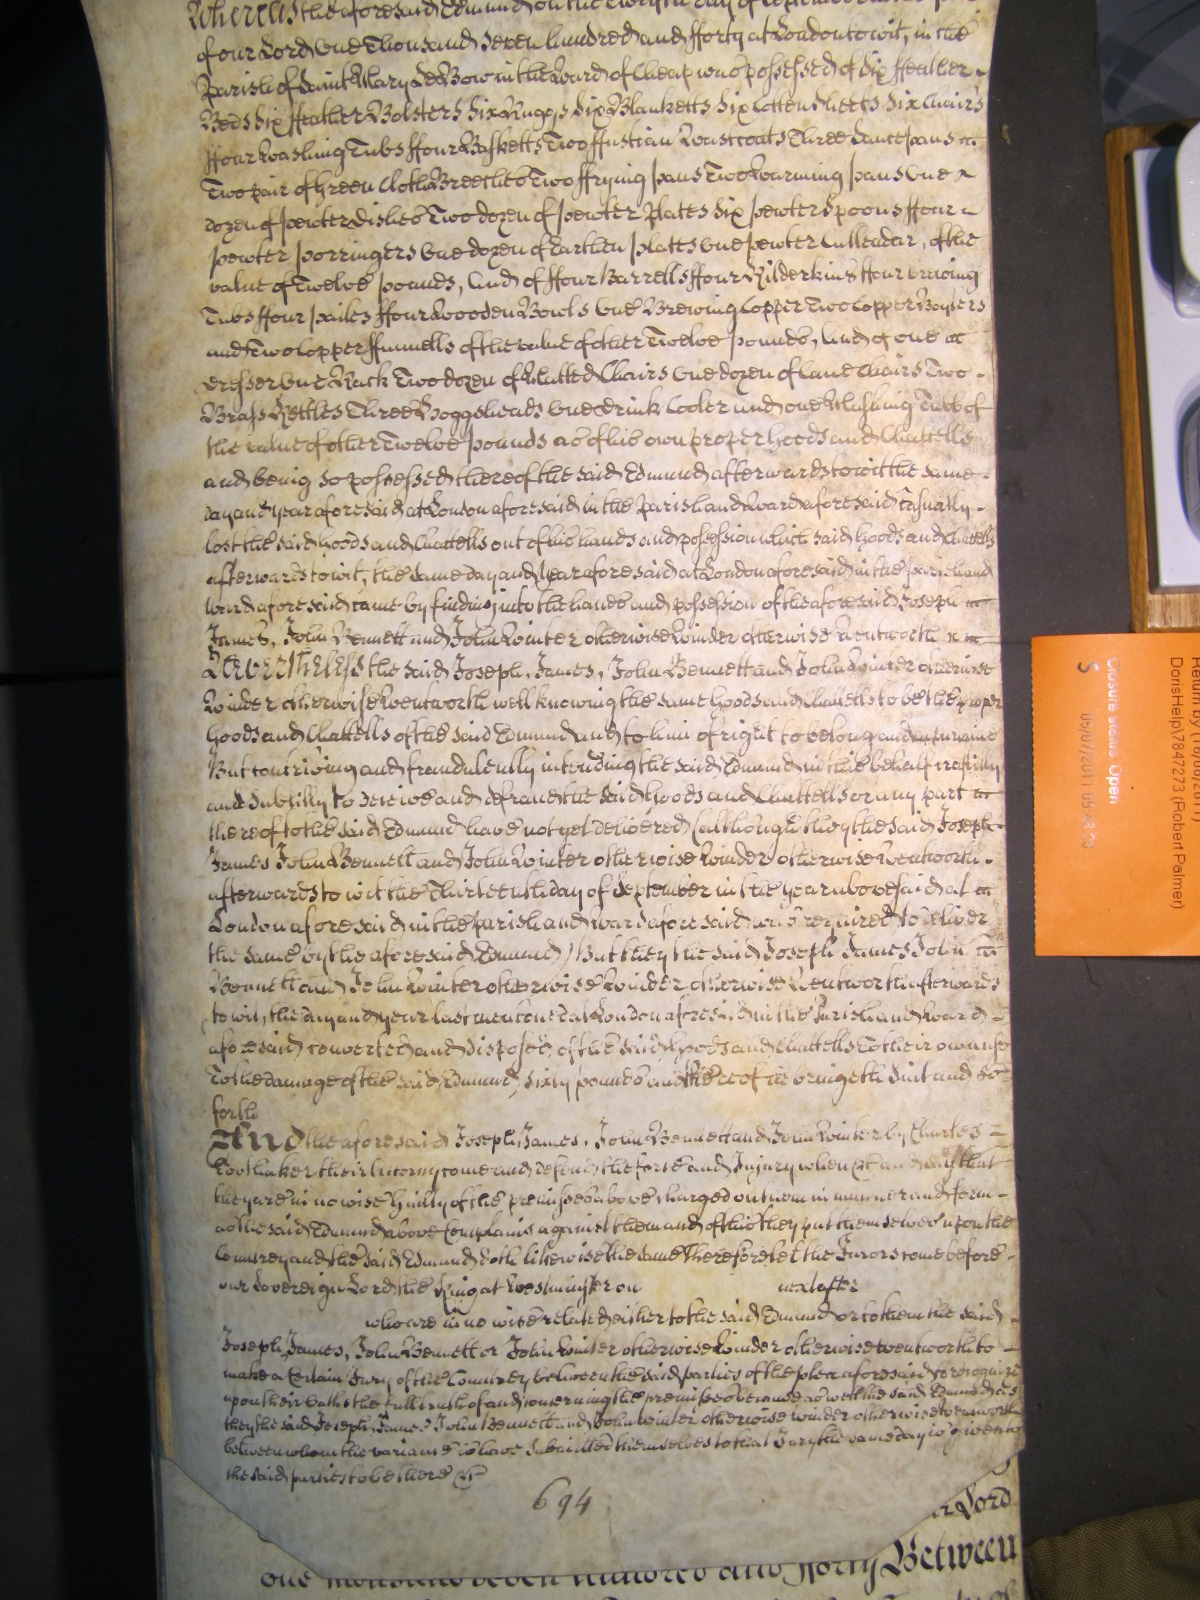 Whereas the aforesaid Edmund on the day of September in the
of our Lord One Thousand Seven hundred and fforty at London to wit, in the
Parish of Saint Mary Le Bow in the Ward of Cheap was possessed of Six ffeather
Beds Six ffeather Bolsters Six Ruggs Six Blanketts Six Cotton Sheets Six Chairs
ffour Washing Tubs ffour Basketts Two ffustian Wastcoats Three Sauce pans
Two pair of Green Cloth Breeches Two ffrying pans Two Warming pans One
dozen of pewter Dishes Two dozen of pewter Plates Six pewter Spoons ffour
pewter porringers One dozen of Earthen plates One pewter Cullendar, of the
value of Twelve pounds, And of ffour Barrells ffour Kilderkins ffour brewing
Tubs ffour pailes ffour Wooden Bowls One Brewing Copper Two Copper Boylers
and Two Copper ffunnells of the value of other Twelve pounds, And of one
dresser One Rack Two dozen of Matted Chairs One dozen of Cane Chairs Two
Brass Kettles Three Hoggsheads One drink Cooler and one Mashing Tubb of
the value of other Twelve pounds as of his own proper Goods and Chattells
and being so possessed thereof the said Edmund afterwards to wit the same
day and year aforesaid at London aforesaid in the Parish and Ward aforesaid casually
lost the said Goods and Chattells out of his hands and possession which said Goods and Chattells
afterwards to wit, the same day and year aforesaid at London aforesaid in the parish and
Ward aforesaid came by finding into the hands and possession of the aforesaid Joseph
James, John Bennett and John Winter otherwise Winder otherwise Wentworth
Nevertheless the said Joseph, James, John Bennett and John Winter otherwise
Winder otherwise Wentworth well knowing the same Goods and Chattells to be the proper
Goods and Chattells of the said Edmund and to him of right to belong and appertaine
But contriving and fraudulently intending the said Edmund in this behalf craftily
and Subtilly to deceive and defraud the said Goods and Chattells or any part
thereof to the said Edmund have not yet delivered (although they the said Joseph
James John Bennett and John Winter otherwise Winder otherwise Wentworth
afterwards to wit the Thirteenth day of September in the year abovesaid at
London aforesaid in the Parish and Ward aforesaid was required to deliver
the same by the aforesaid Edmund) But they the said Joseph James John
Bennett and John Winter otherwise Winder otherwise Wentworth afterwards
to wit, the day and year last mentioned at London aforesaid in the Parish and Ward
aforesaid converted and disposed of the said Goods and Chattells to their own use
To the damage of the said Edmund sixty pounds and thereof he bringeth Suit and so
forth
And the aforesaid Joseph, James, John Bennett and John Winter by Charles
their Attorny come and defend the force and Injury when &c and say that
they are in no wise Guilty of the premisses above charged on them in manner and form
as the said Edmund above Complains against them and of this they put themselves upon the
Countrey and the said Edmund doth likewise the same Therefore let the Jurors come before
our Sovereign Lord the King at Westminster on next after
who are in no wise related either to the said Edmund or to them the said
Joseph, James, John Bennett or John Winter otherwise Winder otherwise Wentworth to
make a Certain Jury of the Countrey between the said parties of the plea aforesaid to recognize
upon their oaths the full truth of and concerning the premisses because as well the said Edmund as
they the said Joseph, James, John Bennett and John Winter otherwise Winder otherwise Wentworth
between whom the variance is have submitted themselves to that Jury the same day is given to
the said parties to be there &c
694
Lord
One thousand Seven hundred and fforty Between
Return by (
DorisHelp\7847273 (Robert Palmer)
Closure status Open
5
05/07/2011